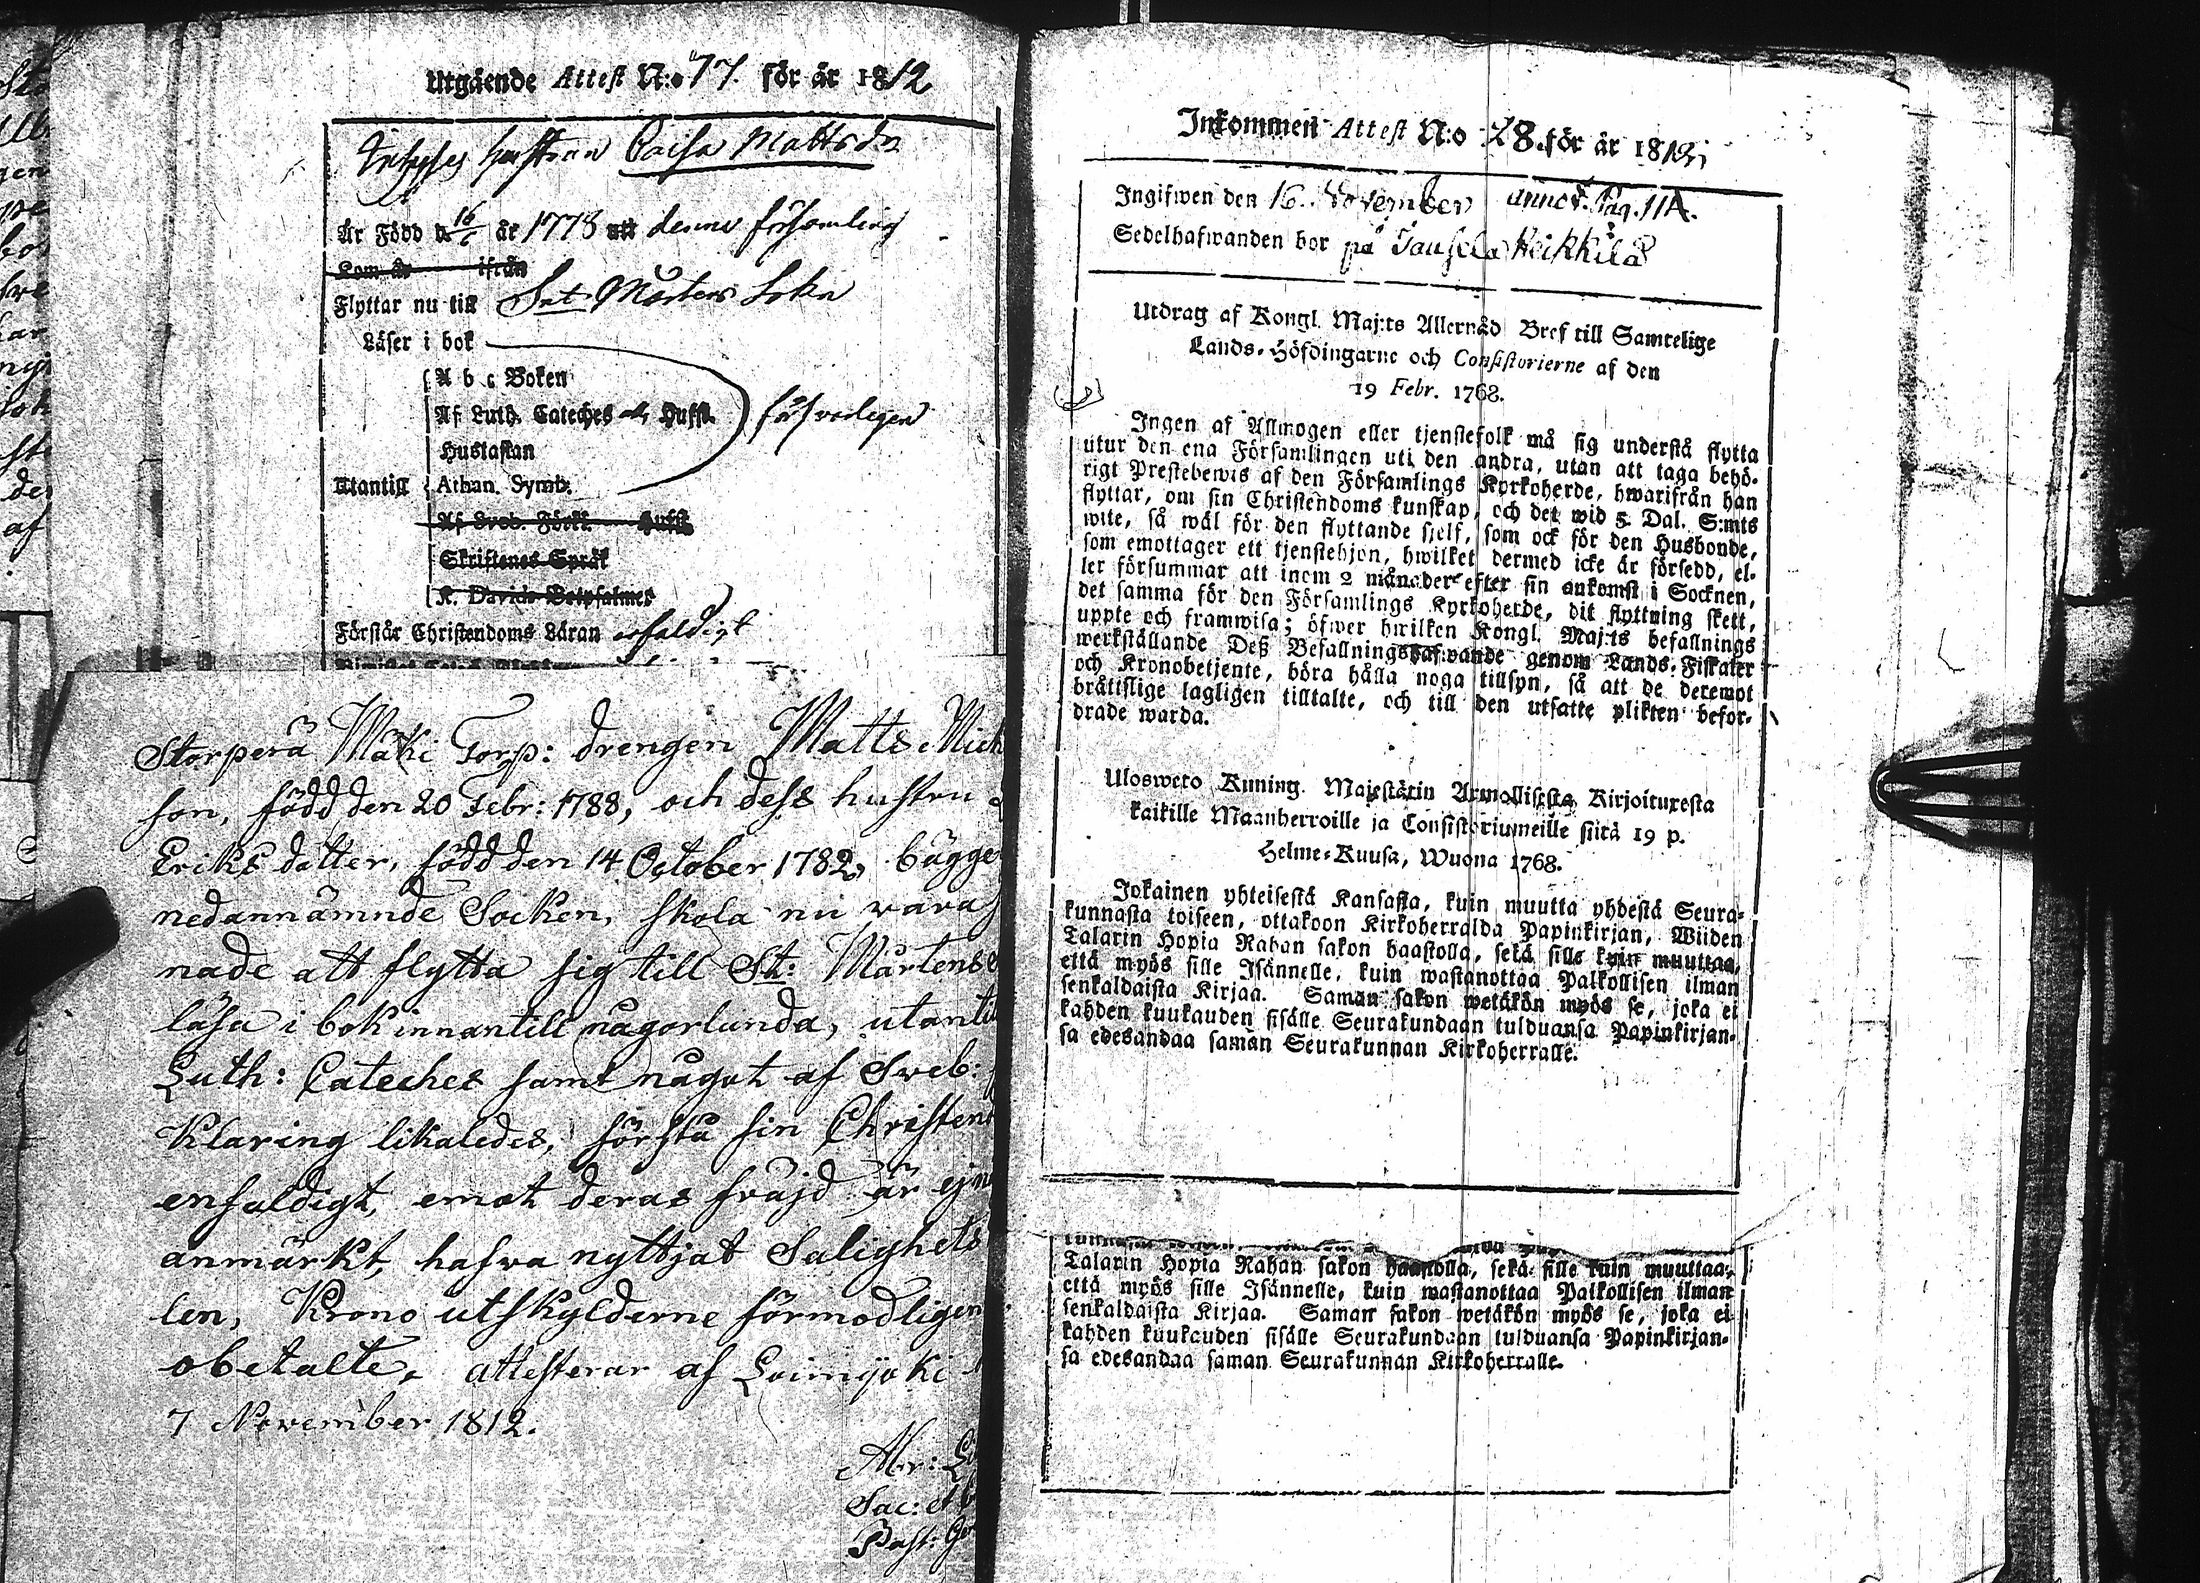 Utgående Attest N:o 77. för år 1812
hustrun Caisa Mattsdr
Är Född d. 16/ år 1778 uti denne församling
Kom år ifrån
Flyttar nu till Snt Mårtens Sokn
Läser i bok
A b c Boken
Af Luth. Cateches Husst.
försvarligen
Hustaflan
Utantill Athan. Symb.
Af Sveb. Förkl. Husst.
Skriftenes Språk
K. Davids Botpsalmer
Förstår Christendoms Läran enfaldigt
Storperä Mäki Torp: drengen Matts Mich
son, född den 20 Febr: 1788, och dess hustru
Eriks dotter, född den 14 October 1782, bägge
nedannämnde Socken, skola nu vara
nade att flytta sig till St: Mårtens
läsa i bok innantill någorlunda, utantil
Luth: Cateches samt något af Sveb:
Klaring likaledes, förstå sin Christen
enfaldigt, emot deras fräjd är ej
anmärkt, hafva nyttjat Salighets
len, Krono utskylderne förmodligen
obetalte, attesterar af Loimijoki
7 November 1812.
Abr: L
Sac: et
Past:
Inkommen Attest N:o 28. för år 1812
Ingifwen den 16. November Pag. 114.
Sedelhafwanden bor på Tausela Heikkilä
Utdrag af Kongl. Maj:ts Allernåd Bref till Samtelige
Lands-Höfdingarne och Consistorierne af den
19 Febr. 1768.
Ingen af Allmogen eller tjenstefolk må sig understå flytta
utur den ena Församlingen uti den andra, utan att taga behö-
rigt Prestebewis af den Församlings Kyrkoherde, hwarifrån han
flyttar, om sin Christendoms kunskap, och det wid 5 Dal. S:mts
wite, så wäl för den flyttande sjelf, som ock för den Husbonde,
som emottager ett tjenstehjon, hwilket dermed icke är försedd, el-
ler försummar att inom 2 månader efter sin ankomst i Socknen,
det samma för den Församlings Kyrkoherde, dit flyttning skett,
uppte och framwisa; öfwer hwilken Kongl. Maj:ts befallnings
werkställande Deß Befallningshafwande genom Lands-Fiskaler
och Kronobetjente, böra hålla noga tillsyn, så att de deremot
bråttslige lagligen tilltalte, och till den utsatte plikten befor-
drade warda.
Uloswето Kuning. Majestätin Armollisesta Kirjoituxesta
kaikille Maanherroille ja Consistoriumeille siitä 19 p.
Helme-Kuusa, Wuona 1768.
Jokainen yhteisestä Kansasta, kuin muutta yhdestä Seura-
kunnasta toiseen, ottakoon Kirkoherralda Papinkirjan, Wiiden
Talarin Hopia Rahan sakon haastolla, sekä sille kuin muuttaa,
että myös sille Isännelle, kuin wastanottaa Palkollisen ilman
senkaldaista Kirjaa. Saman sakon wetäkön myös se, joka ei
kahden kuukauden sisälle Seurakundaan tulduansa Papinkirjan-
sa edesandaa saman Seurakunnan Kirkoherralle.
Talarin Hopia Rahan sakon haastolla, sekä sille kuin muuttaa,
että myös sille Isännelle, kuin wastanottaa Palkollisen ilman
senkaldaista Kirjaa. Saman sakon wetäkön myös se, joka ei
kahden kuukauden sisälle Seurakundaan tulduansa Papinkirjan-
sa edesandaa saman Seurakunnan Kirkoherralle.